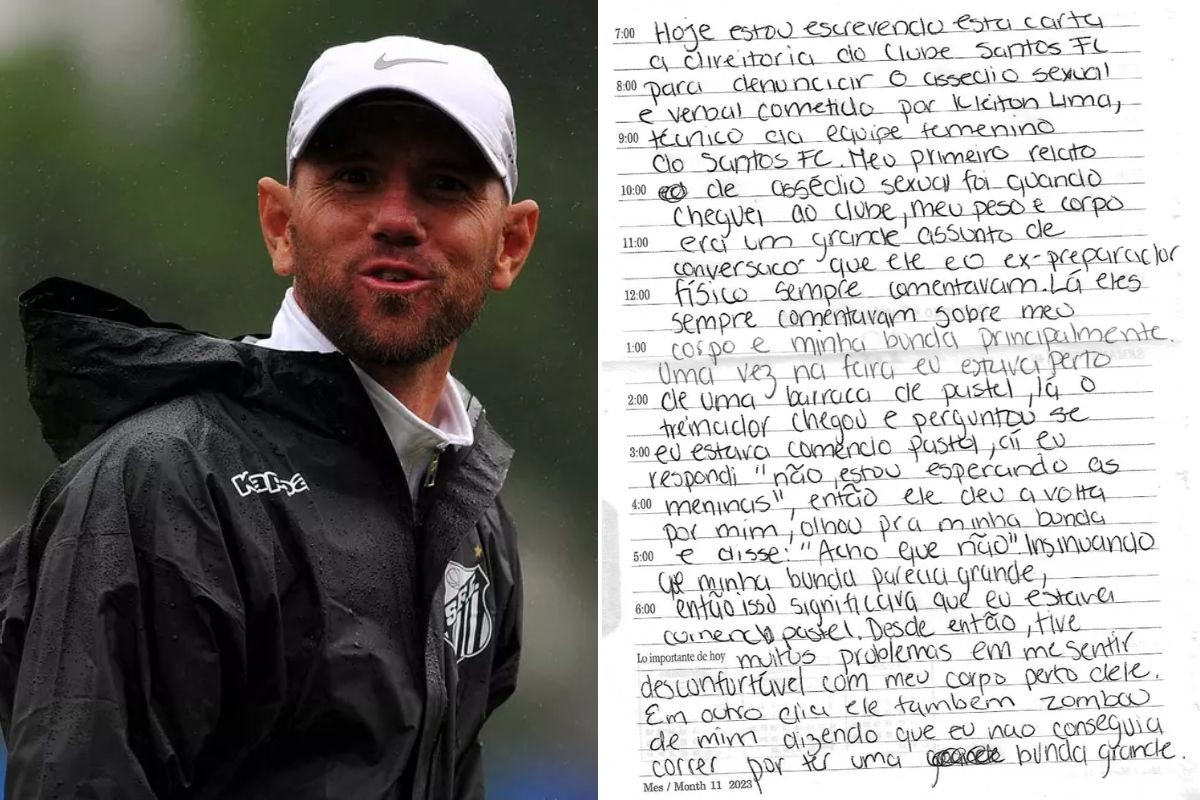 Kappa
SFC
7:00 Hoje estou escrevendo esta carta
a direitoria do Clube Santos FC
8:00 para denunciar o assedio sexual
e verbal cometido por Kleiton Lima,
9:00 técnico da equipe femenino
do Santos FC. Meu primeiro relato
10:00 de assédio sexual foi quando
cheguei ao clube, meu peso e corpo
11:00 era um grande assunto de
conversaco que ele e o ex-preparador
12:00 físico sempre comentavam. Lá eles
sempre comentavam sobre meu
1:00 corpo e minha bunda principalmente.
Uma vez na faira eu estava perto
2:00 de uma barraca de pastel, lá o
treinador chegou e perguntou se
3:00 eu estava comendo pastel, aí eu
respondi "não, estou esperando as
4:00 meninas", então ele deu a volta
por mim, olhou pra minha bunda
5:00 e disse: "Acho que não". Insinuando
qe minha bunda parecia grande,
6:00 então isso significava que eu estava
comendo pastel. Desde então, tive
Lo importante de hoy muitos problemas em me sentir
desconfortável com meu corpo perto dele.
Em outro dia ele também zombou
de mim dizendo que eu nao conseguia
correr por ter uma bunda grande.
Mes / Month 11 2023